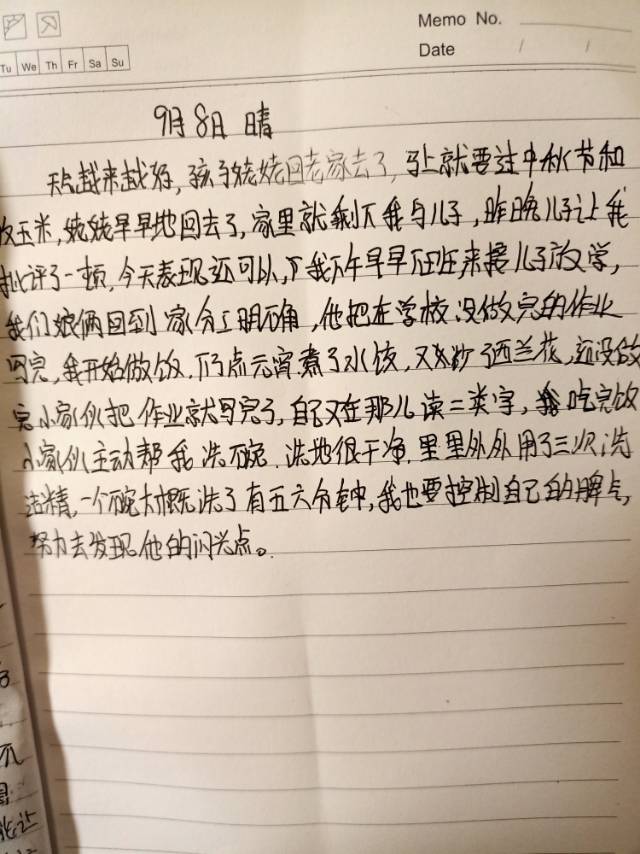 Memo No.
Date / /
Tu We Th Fr Sa Su
9月8日 晴
天气越来越好,孩子姥姥回老家去了,马上就要过中秋节和
收玉米,姥姥早早地回去了,家里就剩下我与儿子,昨晚儿子让我
批评了一顿,今天表现还可以,下我下午早早下班来接儿子放学,
我们娘俩回到家分工明确,他把在学校没做完的作业
写完,我开始做饭.下了点元宵.煮了水饺,又炒了西兰花,还没做
完小家伙把作业就写完了,自己又在那儿读二类字,我吃完饭
小家伙主动帮我洗碗.洗地很干净.里里外外用了三次洗
洁精,一个碗大概洗了有五六分钟,我也要控制自己的脾气,
努力去发现他的闪光点。